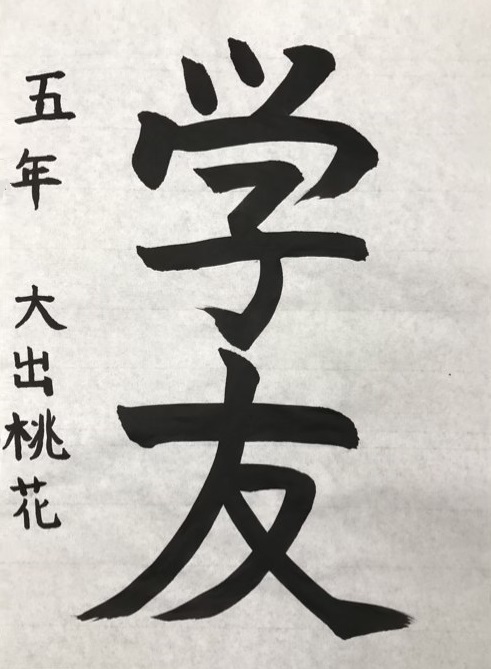 学友
五年 大出桃花